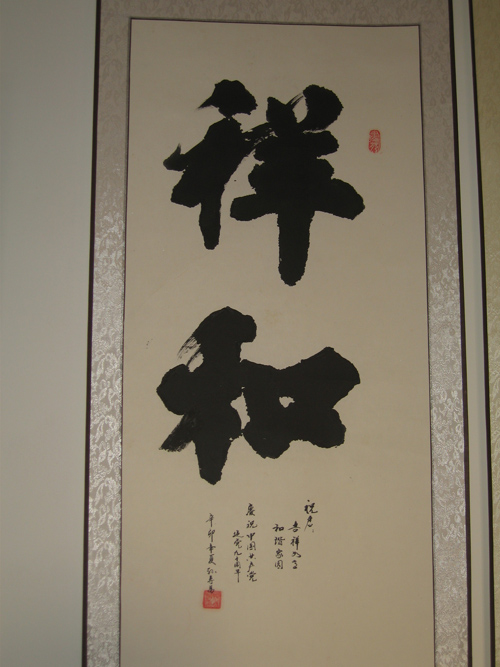 祥和
祝君
吉祥如意
和谐家园
慶祝中國共产党
建党九十周年
辛卯年夏